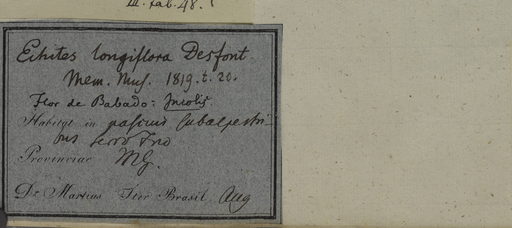 III. tab. 48.
Echites longiflora Desfont.
Mem. Mus. 1819. t. 20.
Flor de Babado: Incolis
Habitat in pascuis subalpestri-
bus Serro Frio
Provinciae MG.
Dr. Martius Iter Brasil. Aug